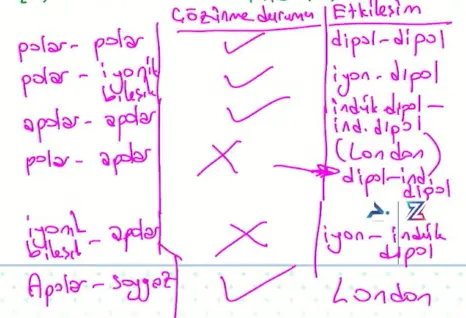 Çözünme durumu Etkileşim
polar - polar ✓ dipol-dipol
polar - iyonik bileşik ✓ iyon - dipol
apolar - apolar ✓ indük. dipol - ind. dipol
(London)
polar - apolar X → dipol-ind. dipol
iyonik bileşik - apolar X iyon - indük dipol
Apolar - soygaz ✓ London